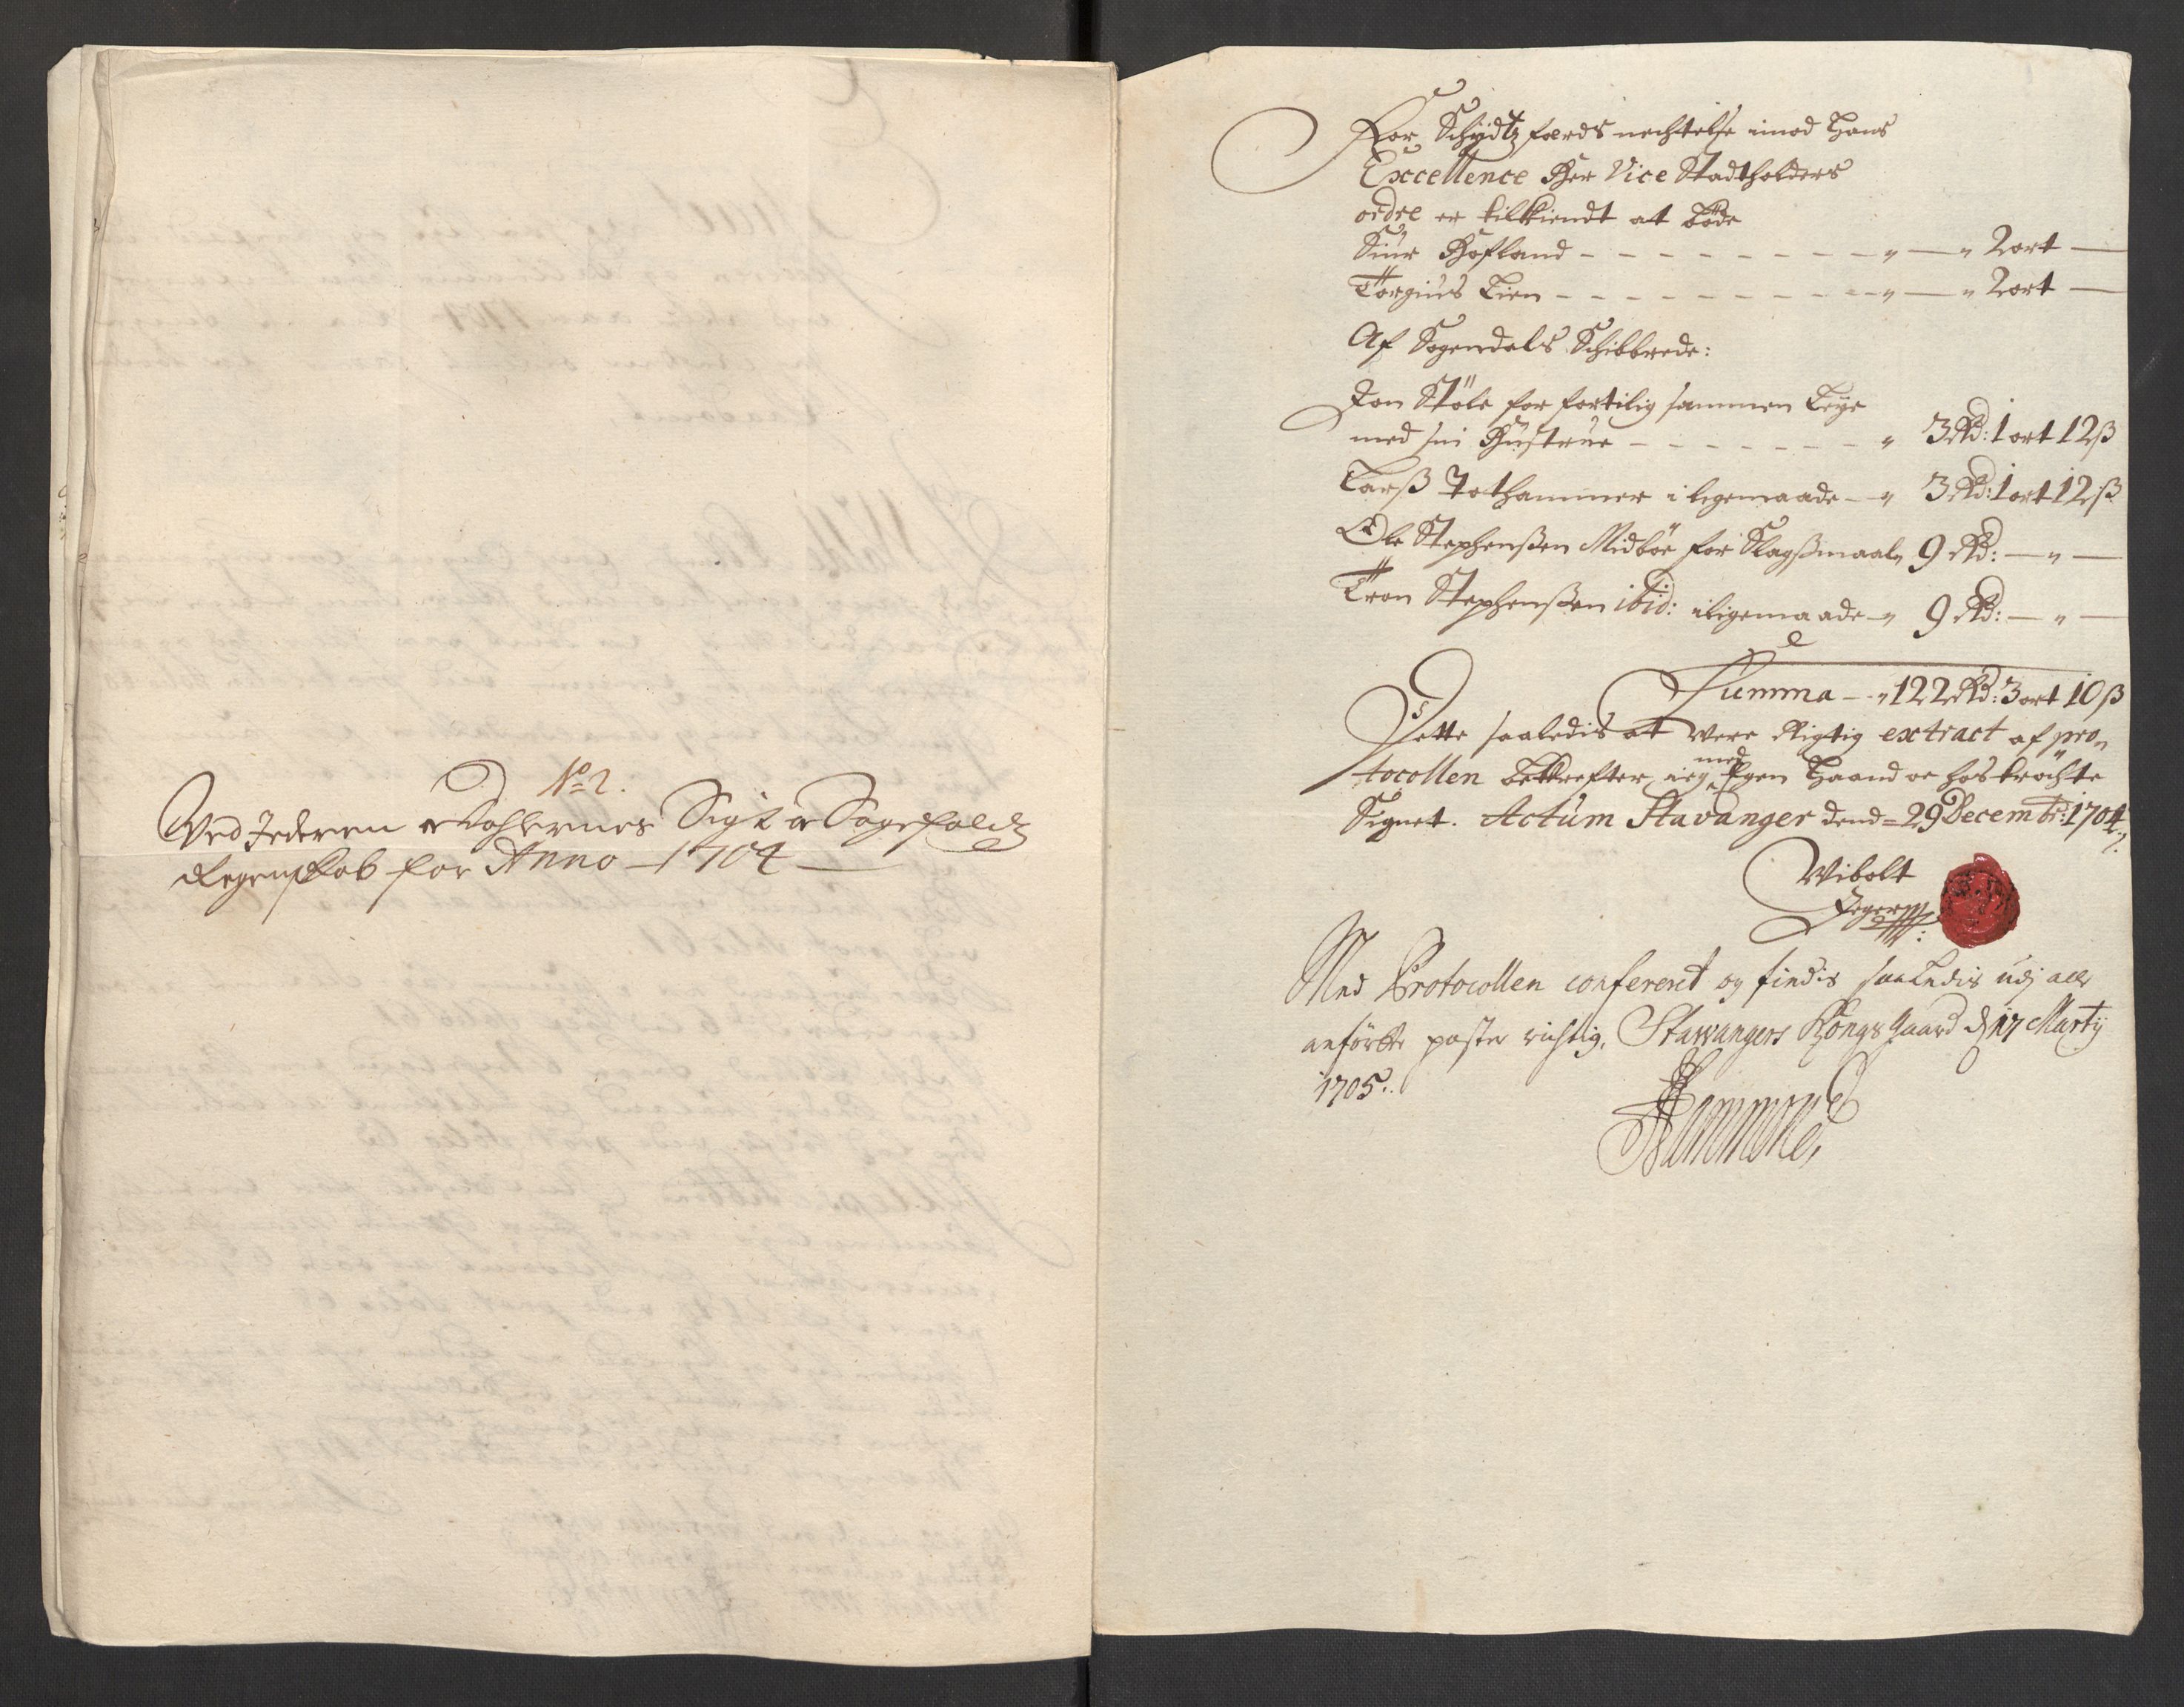 No 2.
Ved Jederen oc Dahlernes Sigt oc Sagefaldz
Regenskab for Anno - 1704 -
For Schydtzfærds nechtelse imod Hans
Excellence Her Vice Stadtholders
ordre er tilkiendt at bøde
Siur Hofland - - - - - - - - - „ — „ 2 ort —
Torgius Lien - - - - - - - - - „ — „ 2 ort —
Af Sogendals Schibbrede:
Jon Støle for fortilig sammen Leye
med sin Hustrue - - - - - - - „ 3 Rd: 1 ort 12 ß
Larß Tothammer i ligemaade - „ 3 Rd: 1 ort 12 ß
Ole Stephenßen Midbøe for Slagßmaal „ 9 Rd: — „ —
Tron Stephenßen ibid: i ligemaade - „ 9 Rd: — „ —
Summa - „ 122 Rd: 3 ort 10 ß
Dette saaledis at were Rigtig extract af pro„
tocollen bekrefter ieg med Egen Haand oc hos trøchte
Signet. Actum Stavanger dend = 29 Decembr: 1704
Wibolt
Jeger
Med Protocollen conferert og findis saaledis udj alle
anførte poster richtig, Stawangers Kongsgaard d 17 Martij
1705.